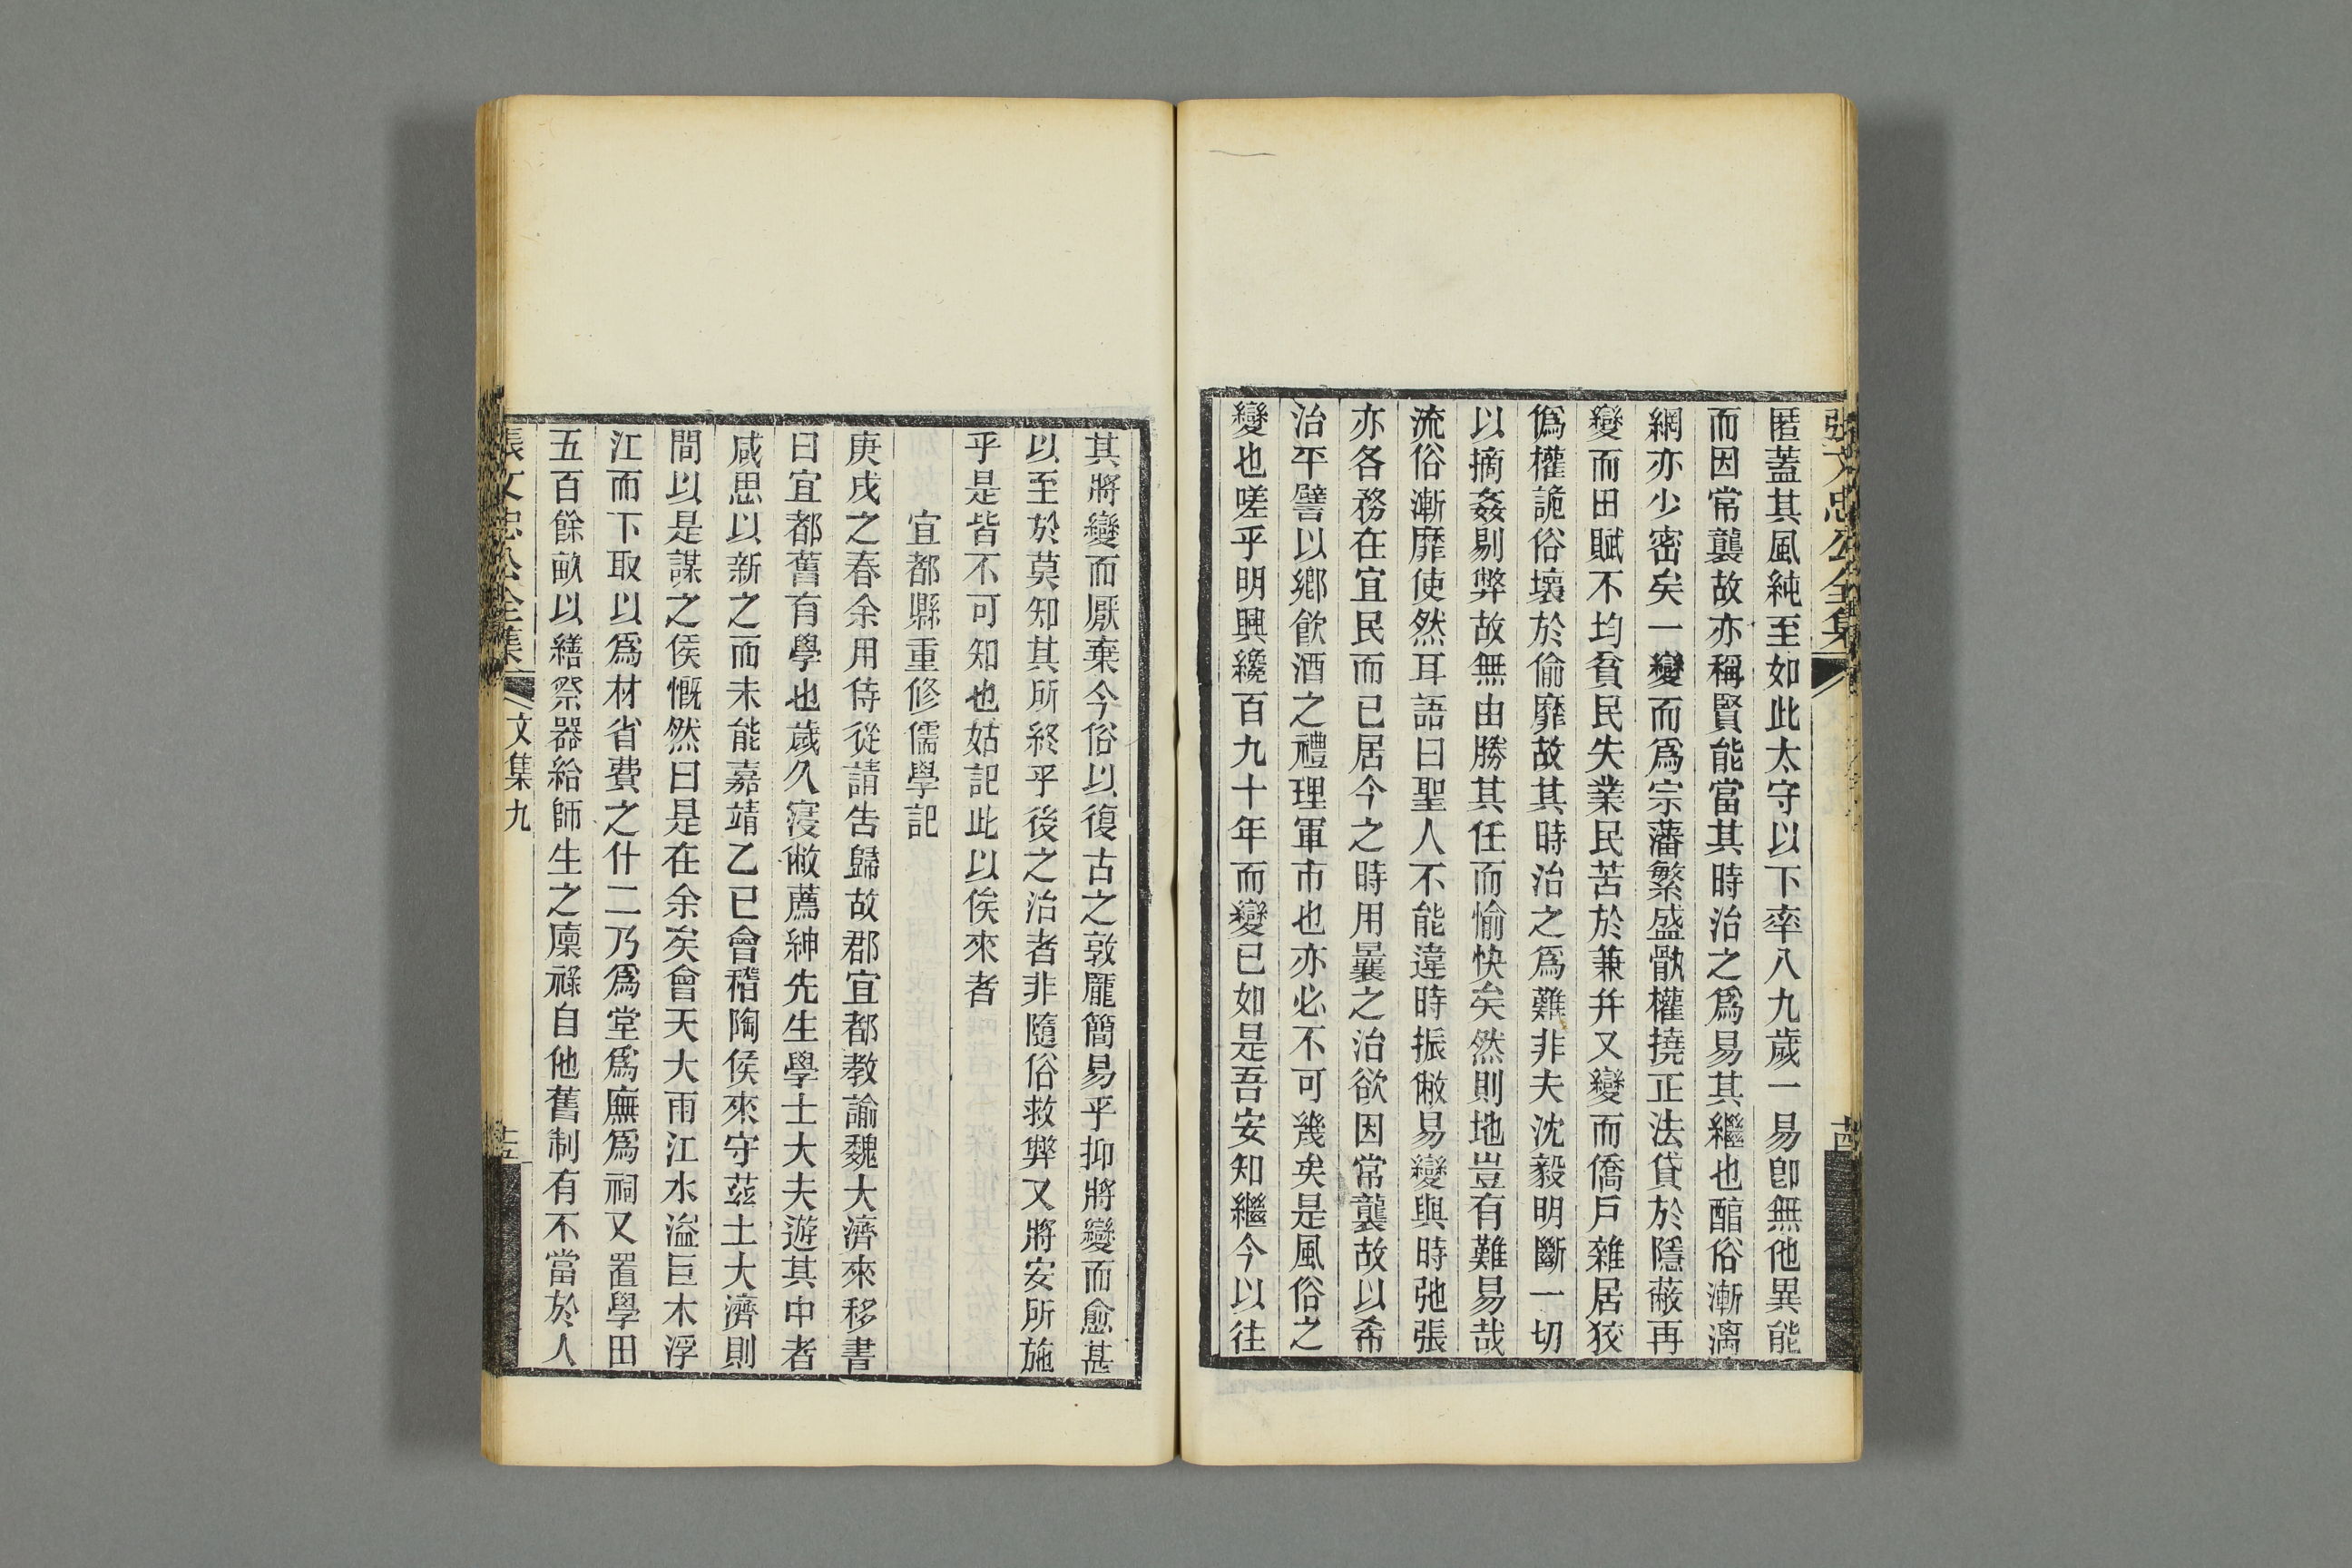 張文忠公全集
匿蓋其風純至如此太守以下率八九歲一易卽無他異能
而因常襲故亦稱賢能當其時治之爲易其繼也醅俗漸漓
網亦少密矣一變而爲宗藩繁盛骫權撓正法貸於隱蔽再
變而田賦不均貧民失業民苦於兼幷又變而僑戶雜居狡
僞權詭俗壞於偷靡故其時治之爲難非夫沈毅明斷一切
以摘姦剔弊故無由勝其任而愉快矣然則地豈有難易哉
流俗漸靡使然耳語曰聖人不能違時振僘易變與時弛張
亦各務在宜民而已居今之時用曩之治欲因常襲故以希
治平譬以鄉飮酒之禮理軍市也亦必不可幾矣是風俗之
變也嗟乎明興纔百九十年而變已如是吾安知繼今以往
其將變而厭棄今俗以復古之敦龐簡易乎抑將變而愈甚
以至於莫知其所終乎後之治者非隨俗救弊又將安所施
乎是皆不可知也姑記此以俟來者
宜都縣重修儒學記
庚戌之春余用侍從請告歸故郡宜都教諭魏大濟來移書
曰宜都舊有學也歲久寖敝薦紳先生學士大夫遊其中者
咸思以新之而未能嘉靖乙巳會稽陶侯來守茲土大濟則
間以是謀之侯慨然曰是在余矣會天大雨江水溢巨木浮
江而下取以爲材省費之什二乃爲堂爲廡爲祠又置學田
五百餘畝以繕祭器給師生之廩祿自他舊制有不當於人
張文忠公全集
文集九